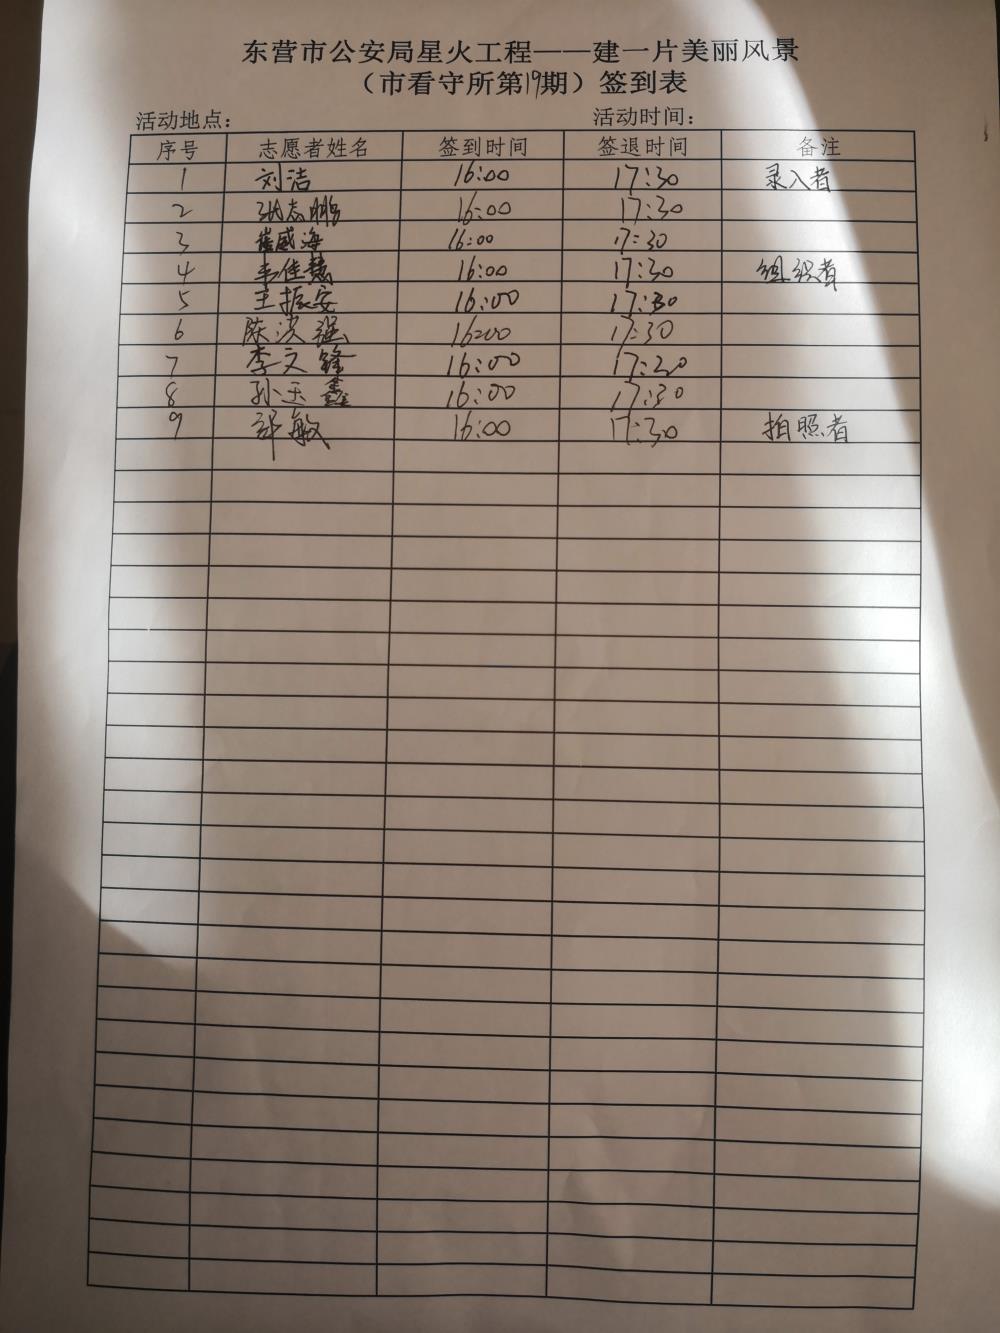 东营市公安局星火工程——建一片美丽风景
（市看守所第19期）签到表
活动地点： 活动时间：
序号 志愿者姓名 签到时间 签退时间 备注
1 刘洁 16:00 17:30 录入者
2 张志鹏 16:00 17:30
3 崔威海 16:00 17:30
4 佳慧 16:00 17:30 组织者
5 王振安 16:00 17:30
6 陈洪强 16:00 17:30
7 李文锋 16:00 17:30
8 孙玉鑫 16:00 17:30
9 许敏 16:00 17:30 拍照者